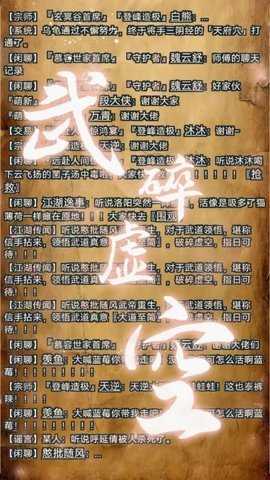 【宗师】『玄冥谷首席』『登峰造极』白熊：...
【系统】乌龟通过不懈努力，终于将手三阴经的「天府穴」打通了。
【闲聊】『慕容世家首席』『守护者』魏云舒：师傅的聊天记录
【闲聊】『慕容世家首席』『守护者』魏云舒：好家伙
『萌新』段大侠：谢谢大家
『萌』万青：谢谢大佬
【交易】人惊鸿宴』『登峰造极』沐沐：谢谢~
【宗师】『登峰造极』天逆：谢谢大佬
【闲聊】远赴人间『登峰造极』沐沐：听说沐沐喝下云飞扬的里子汤中毒啦 大家快去 〖抢救〗
【闲聊】江湖逸事：听说洛阳突然 活像是吸多了猫薄荷一样瘫在原地！！！大家快去〖围观
【江湖传闻】听说憨批随风 对于武道领悟，堪称信手拈来，领悟武道真意〖大道至简〗，破碎虚空，指日可待！！！
【江湖传闻】听说憨批随风武帝重生，对于武道领悟，堪称信手拈来，领悟武道真意〖大道至简〗，破碎虚空，指日可待！！！
【闲聊】『慕容世家首席』『守护者』魏云舒：
【宗师】『登峰造极』天逆：谢谢大佬们
【闲聊】羡鱼：大喊蓝莓你带我走 可怎么活啊蓝莓）！！！！！！！！
【宗师】『登峰造极』天逆：天逆 蛙蛙！这也泰裤辣！！！
【闲聊】羡鱼：大喊蓝莓你带我走吧 可怎么活啊蓝莓！！！！！！！！
【谣言】某人：听说呼延倩被人杀死了。
【闲聊】憨批随风：...
武碎虚空